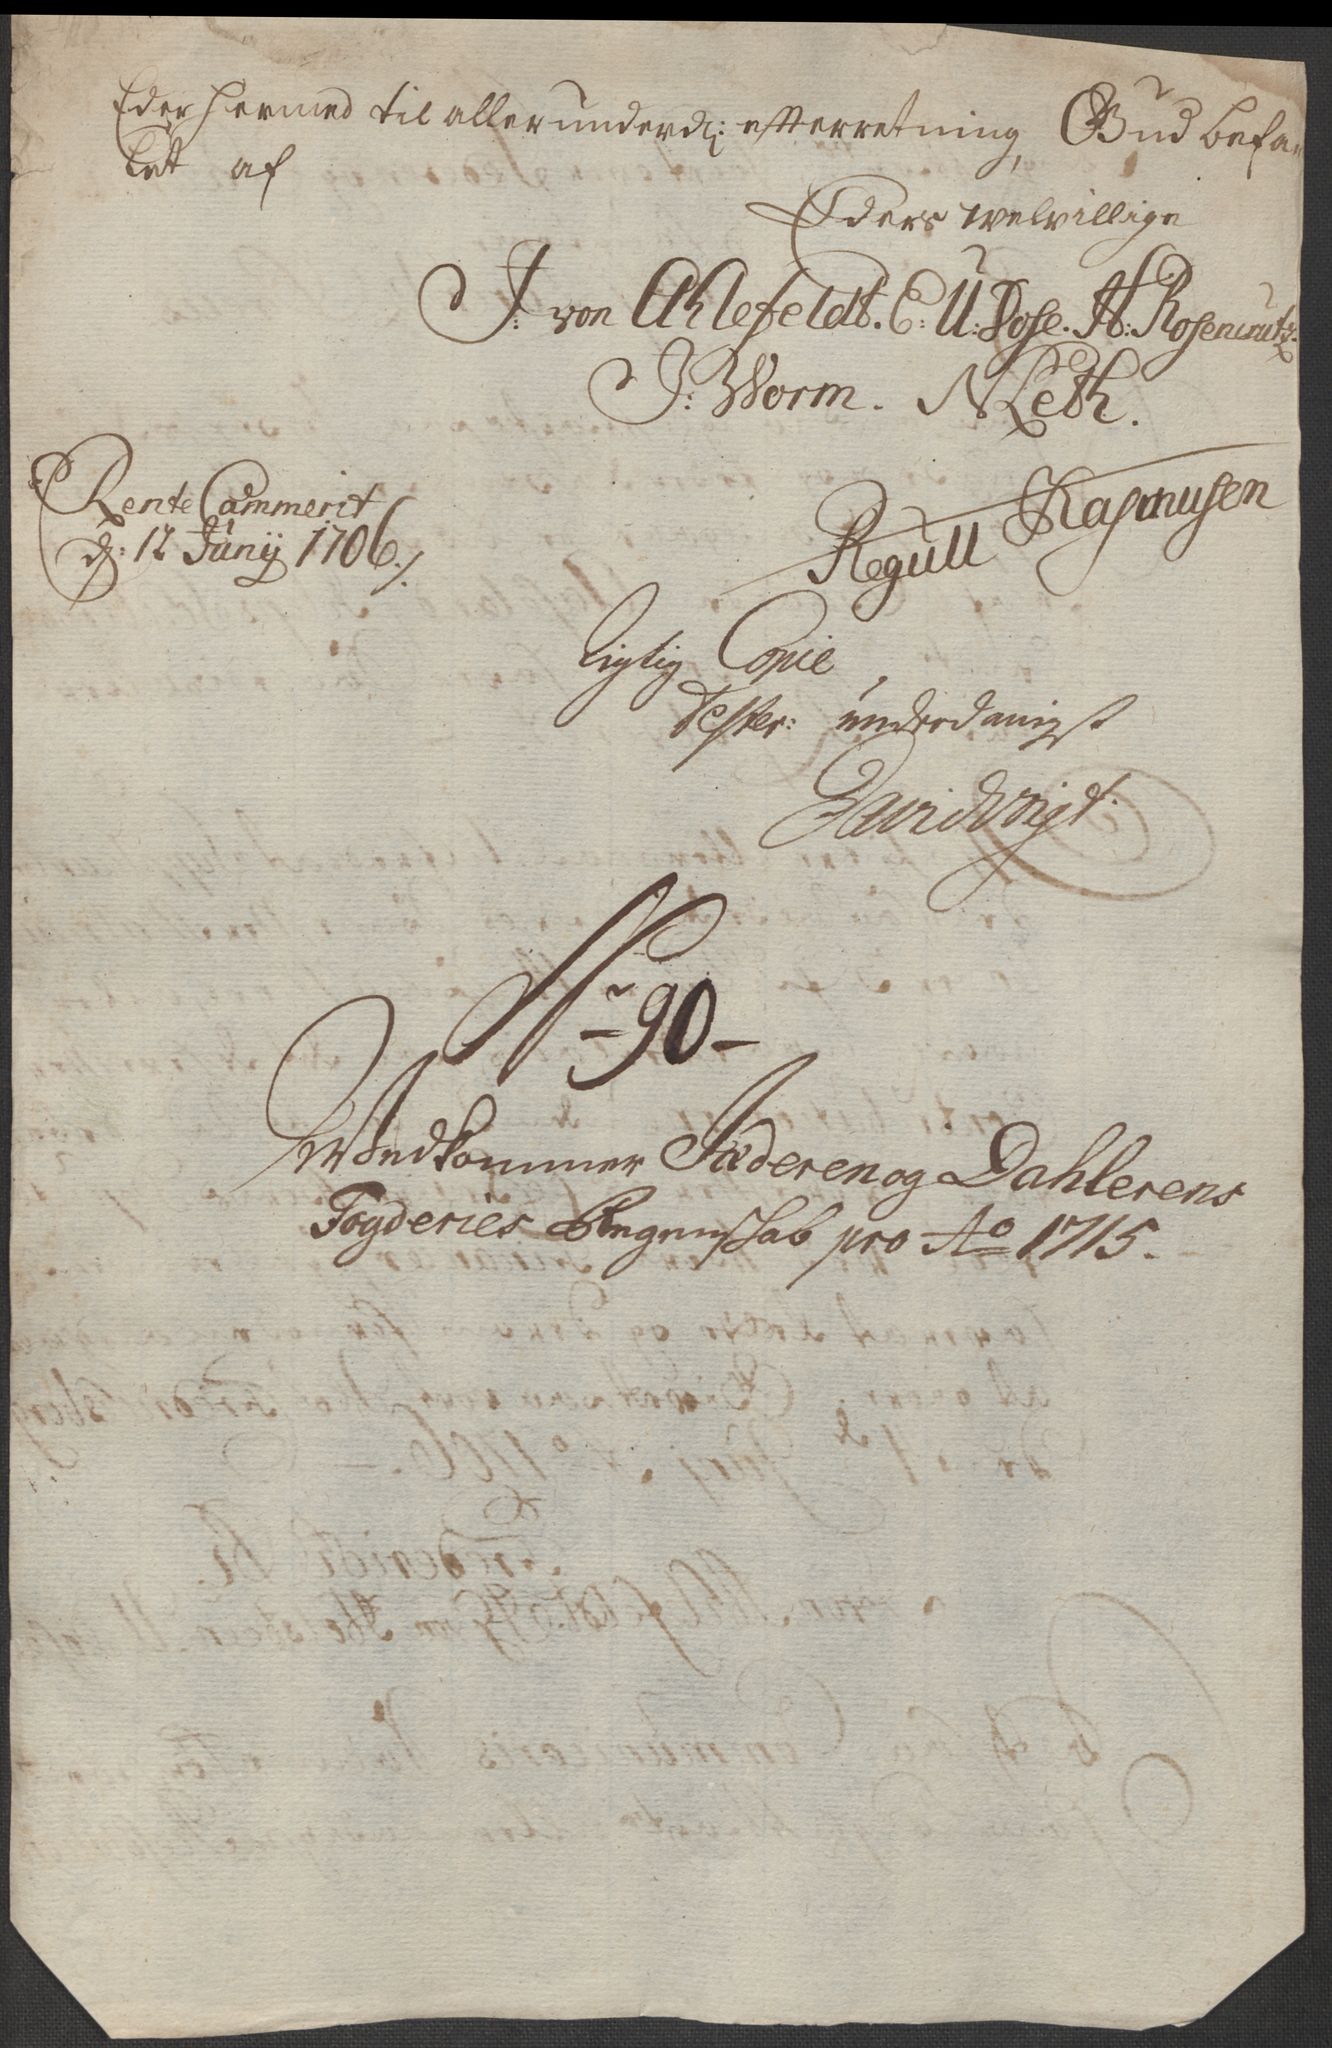 Eder hermed til allerunderd: efterretning, Gud befa-
let af
Eders welvillige
J: von Ahlefeldt. C: U: Dose. H: Rosencrutz.
J: Worm. N Leth.
Rente Cammerit
d: 12 Junij 1706./.
Regull Rasmusen
Rigtig Copie
Tester: underdanigst
David Voigt.
Nr 90
Wedkommer Jæderen og Dahlerens
Fogderies Regenskab pro Ao 1715.